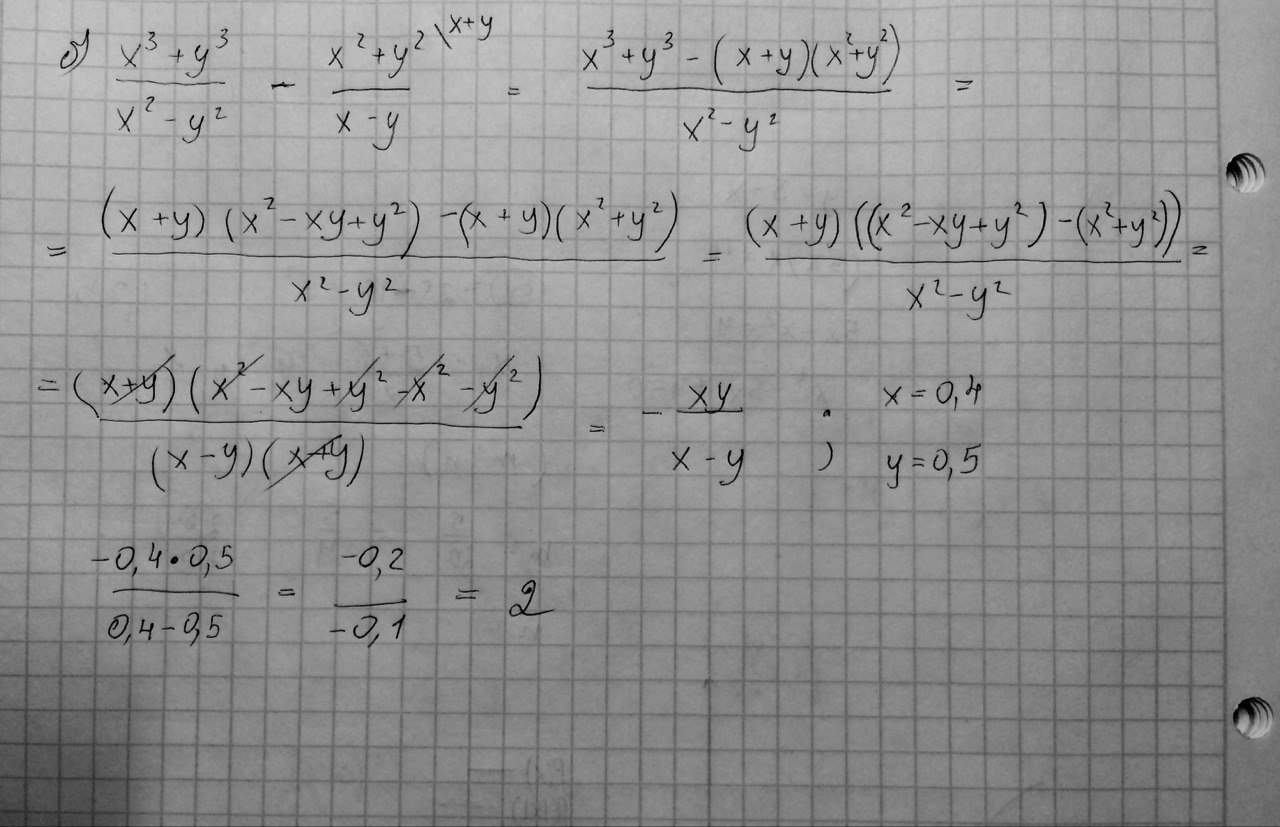 б) (x³ + y³)/(x² - y²) - (x² + y²)/(x - y) \x+y = (x³ + y³ - (x+y)(x²+y²))/(x² - y²) =
= ((x + y)(x² - xy + y²) - (x + y)(x² + y²))/(x² - y²) = ((x + y)((x² - xy + y²) - (x² + y²)))/(x² - y²) =
= ((x+y)(x² - xy + y² - x² - y²))/((x - y)(x+y)) = - xy/(x - y) ; x = 0,4 y = 0,5
(-0,4 • 0,5)/(0,4 - 0,5) = (-0,2)/(-0,1) = 2